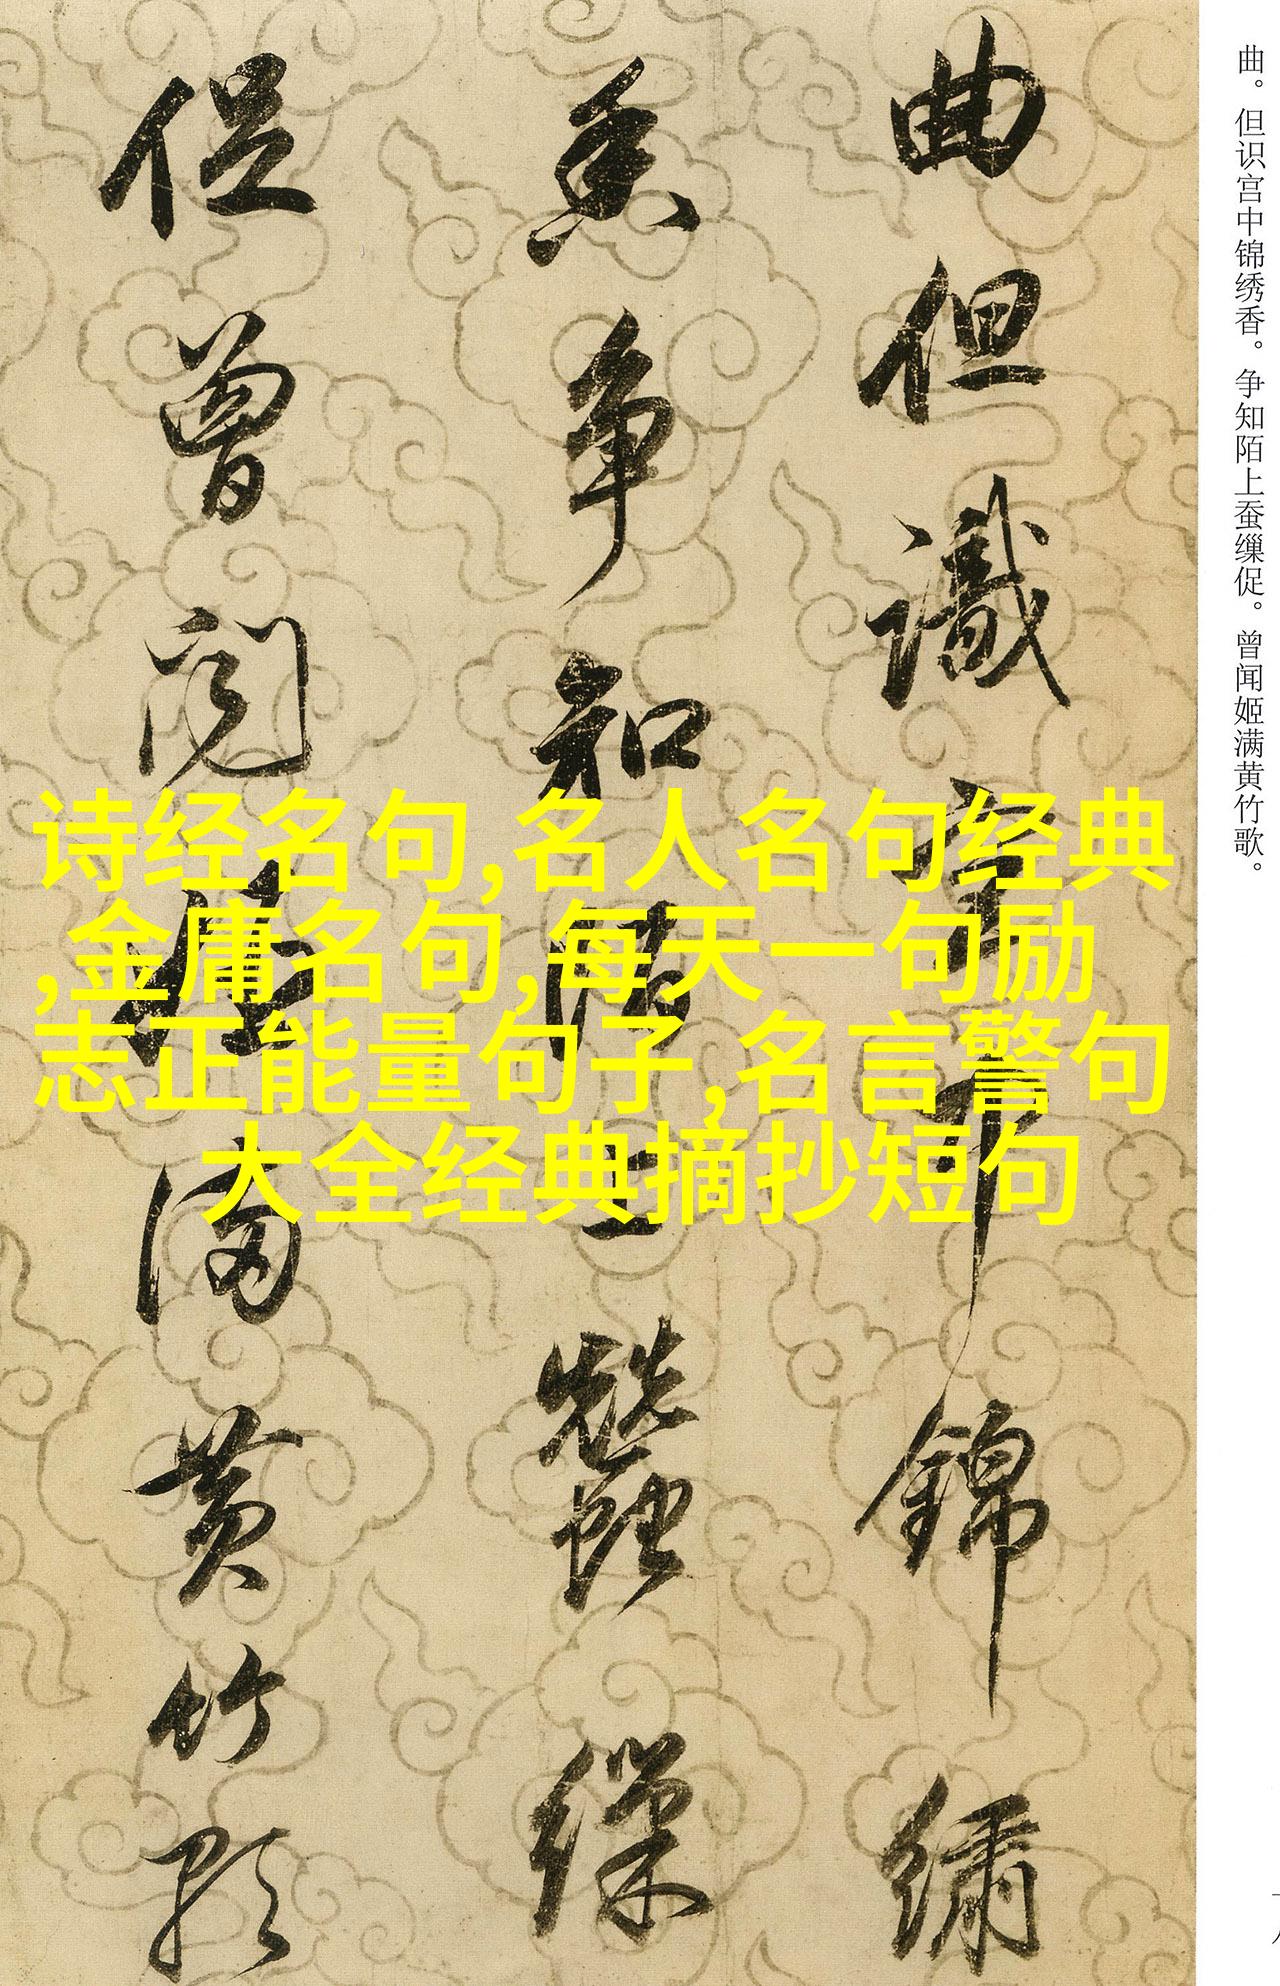 曲。但识宫中锦绣香。争知陌上蚕缫促。曾闻姬满黄竹歌。
曲但識宮中錦繡
香争知陌上蠶繅
促曾闻姬满黄竹歌
诗经名句,名人名句经典
,金庸名句,每天一句励
志正能量句子,名言警句
大全经典摘抄短句